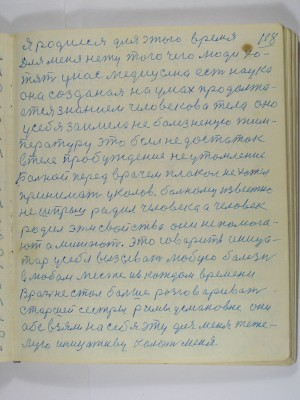 118
Я родился для этого время
для меня нету того чего люди хо-
тят у нас медицина есть наука
она созданая на умах продолжа-
ется знанием человекова тела оно
у себя заимело не болезненую тем-
пературу это был не достаток
в теле пробуждение не утомление
Больной перед врачем плакал не хотел
принимать уколов, больному известно
не шприц радил человека а человек
родил эти свойства они не помога-
ют а мешают. Это говарит
у себя вызывать любую болезн
в любом месте и в каждом времени
Врач не стал больше розговаривать
старшей сестры они
абе взяли на себя эту для меня теже-
лую колоть меня.